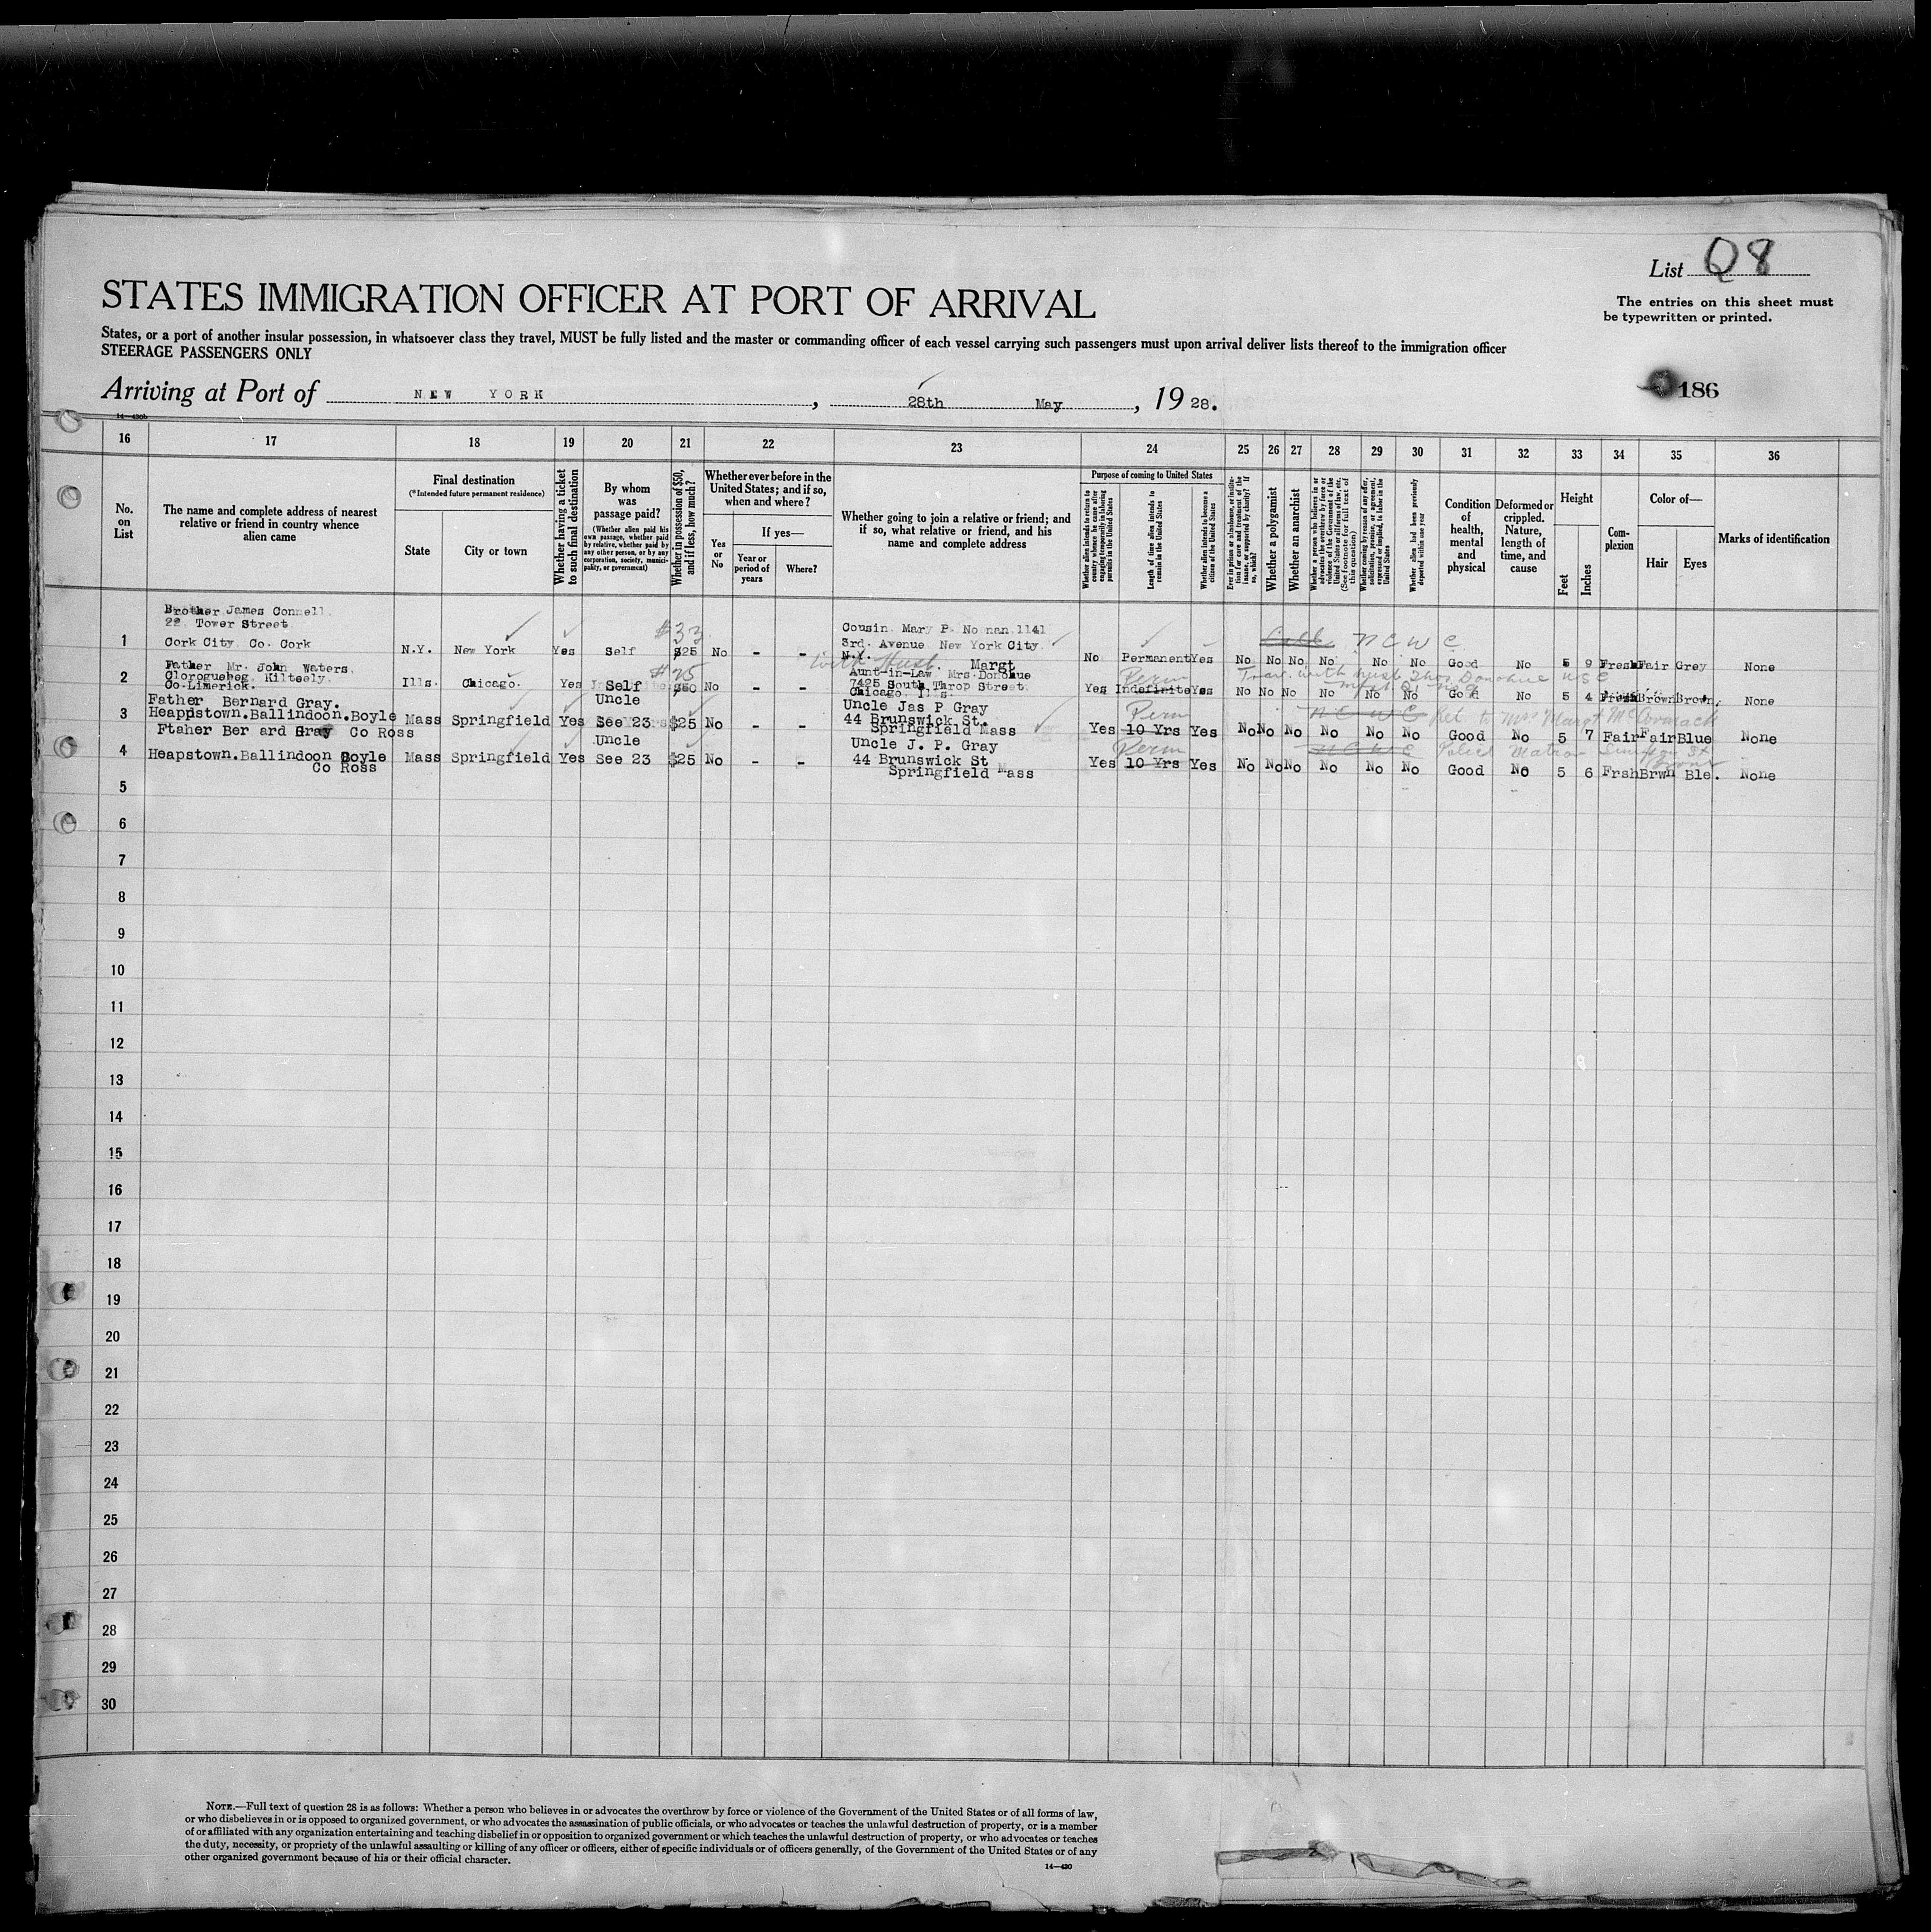 List Q8
STATES IMMIGRATION OFFICER AT PORT OF ARRIVAL
The entries on this sheet must
be typewritten or printed.
States, or a port of another insular possession, in whatsoever class they travel, MUST be fully listed and the master or commanding officer of each vessel carrying such passengers must upon arrival deliver lists thereof to the immigration officer
STEERAGE PASSENGERS ONLY
Arriving at Port of NEW YORK, 28th May, 1928.
186
14—430b
16 17 18 19 20 21 22 23 24 25 26 27 28 29 30 31 32 33 34 35 36
No.
on
List
The name and complete address of nearest
relative or friend in country whence
alien came
Final destination
(*Intended future permanent residence)
State
City or town
Whether having a ticket
to such final destination
By whom
was
passage paid?
(Whether alien paid his
own passage, whether paid
by relative, whether paid by
any other person, or by any
corporation, society, munici-
pality, or government)
Whether in possession of $50,
and if less, how much?
Whether ever before in the
United States; and if so,
when and where?
Yes
or
No
If yes—
Year or
period of
years
Where?
Whether going to join a relative or friend; and
if so, what relative or friend, and his
name and complete address
Purpose of coming to United States
Whether alien intends to return to
country whence he came after
engaging temporarily in laboring
pursuits in the United States
Length of time alien intends to
remain in the United States
Whether alien intends to become a
citizen of the United States
Ever in prison or almshouse, or institu-
tion for care and treatment of the
insane, or supported by charity? If
so, which?
Whether a polygamist
Whether an anarchist
Whether a person who believes in or
advocates the overthrow by force or
violence of the Government of the
United States or all forms of law, etc.
(See footnote for full text of
this question)
Whether coming by reason of any offer,
solicitation, promise, or agreement,
expressed or implied, to labor in the
United States
Whether alien had been previously
deported within one year
Condition
of
health,
mental
and
physical
Deformed or
crippled.
Nature,
length of
time, and
cause
Height
Feet
Inches
Com-
plexion
Color of—
Hair
Eyes
Marks of identification
Brother James Connell.
22 Tower Street
1 Cork City Co. Cork N.Y. New York Yes Self $33 $25 No - -
Cousin Mary P. Noonan 1141
3rd. Avenue New York City
N.Y.
No Permanent Yes No No No No No No Good No 5 9 Fresh Fair Grey None
N C W C
Father Mr. John Waters.
2 Clorogueheg Kilteely.
Co.Limerick. Ills. Chicago. Yes Self $25 $50 No - -
with Husb. Margt
Aunt-in-Law Mrs. Donohue
7425 South Throp Street
Chicago.
Perm
Yes Indefinite Yes No No No No No No Good No 5 4 Fresh Brown Brown. None
Trav. with husb Thos Donohue USC
Father Bernard Gray.
3 Heappstown.Ballindoon.Boyle Mass Springfield Yes Uncle See 23 $25 No - -
Co Ross
Uncle Jas P Gray
44 Brunswick St.
Springfield Mass
Perm
Yes 10 Yrs Yes No No No No No No Good No 5 7 Fair Fair Blue None
N C W C Rel. to Mrs Margt McCormack
Ftaher Ber ard Gray
4 Heapstown.Ballindoon Boyle Mass Springfield Yes Uncle See 23 $25 No - -
Co Ross
Uncle J. P. Gray
44 Brunswick St
Springfield Mass
Perm
Yes 10 Yrs Yes No No No No No No Good No 5 6 Frsh Brwn Ble. None
N C W C Police Matron Simpson St Bronx
5
6
7
8
9
10
11
12
13
14
15
16
17
18
19
20
21
22
23
24
25
26
27
28
29
30
NOTE.—Full text of question 28 is as follows: Whether a person who believes in or advocates the overthrow by force or violence of the Government of the United States or of all forms of law,
or who disbelieves in or is opposed to organized government, or who advocates the assassination of public officials, or who advocates or teaches the unlawful destruction of property, or is a member
of or affiliated with any organization entertaining and teaching disbelief in or opposition to organized government or which teaches the unlawful destruction of property, or who advocates or teaches
the duty, necessity, or propriety of the unlawful assaulting or killing of any officer or officers, either of specific individuals or of officers generally, of the Government of the United States or of any
other organized government because of his or their official character.
14—430